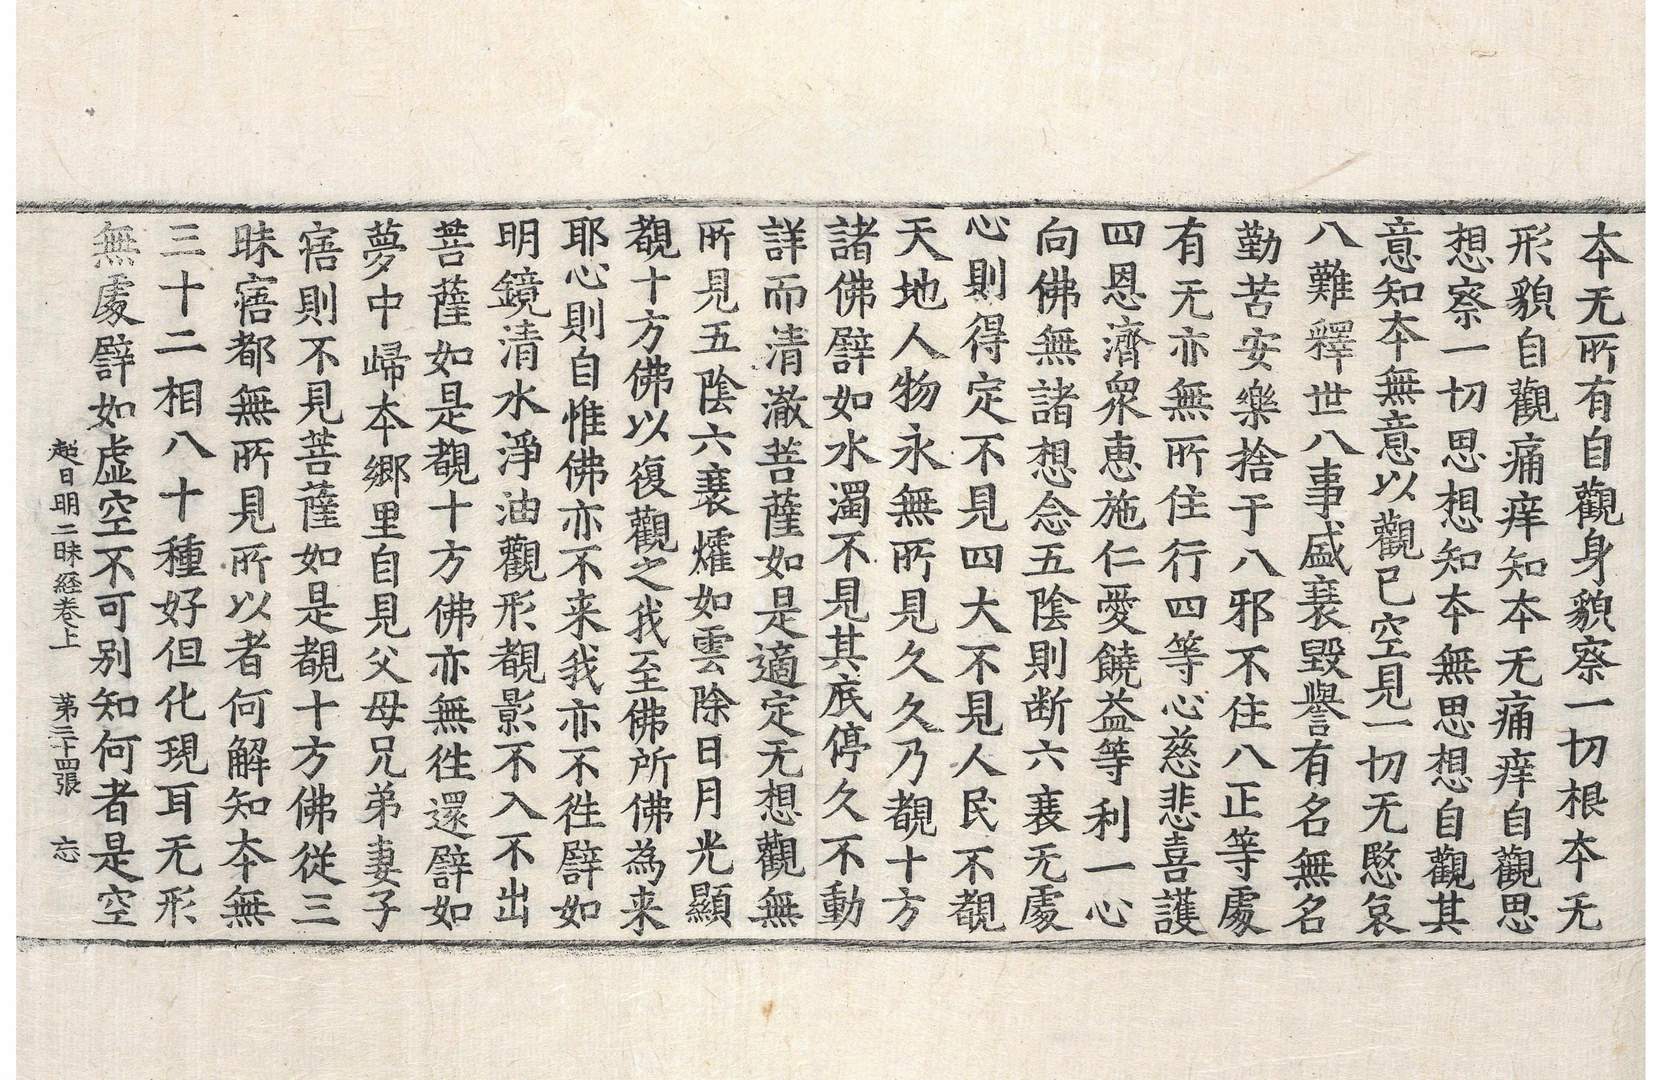 本无所有自觀身貌察一切根本无
形貌自觀痛痒知本无痛痒自觀思
想察一切思想知本無思想自觀其
意知本無意以觀已空見一切无慜哀
八難釋世八事盛衰毀譽有名無名
勤苦安樂捨于八邪不住八正等處
有无亦無所住行四等心慈悲喜護
四恩濟衆恵施仁愛饒益等利一心
向佛無諸想念五陰則断六衰无處
心則得定不見四大不見人民不覩
天地人物永無所見久久乃覩十方
諸佛譬如水濁不見其底停久不動
詳而清澈菩薩如是適定无想觀無
所見五陰六衰㸌如雲除日月光顯
覩十方佛以復觀之我至佛所佛為来
耶心則自惟佛亦不来我亦不徃譬如
明鏡清水淨油觀形覩影不入不出
菩薩如是覩十方佛亦無徃還譬如
夢中歸本郷里自見父母兄弟妻子
寤則不見菩薩如是覩十方佛従三
昧寤都無所見所以者何解知本無
三十二相八十種好但化現耳无形
無處譬如虚空不可別知何者是空
超日明三昧経巻上 第三十四張 忘